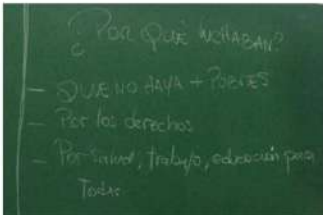 ¿POR QUÉ LUCHABAN?
- QUE NO HAYA + POBRES
- Por los derechos
- Por salud, trabajo, educación para
Todos